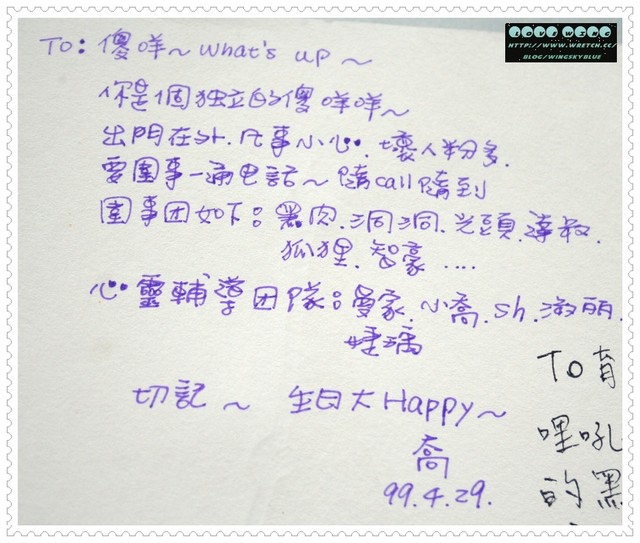 LOVE WING
HTTP://WWW.WRETCH.CC/
BLOG/WINGSKYBLUE
TO: 傻咩~ What's up ~
你是個独立的傻咩咩~
出門在sh. 凡事小心. 壞人粉多.
要圍事一通电話~ 隨call隨到
圍事団如下: 黑肉. 洞洞. 光頭. 達叔.
狐狸. 智豪 ....
心靈輔導団隊: 曼家. 小喬. sh. 淑丽.
切記 ~ 生日大Happy~
喬
99.4.29.
TO育
哩吼
的黑